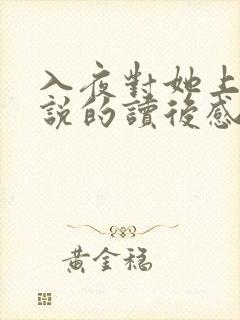 入夜對她上
說的讀後感
黃金穗